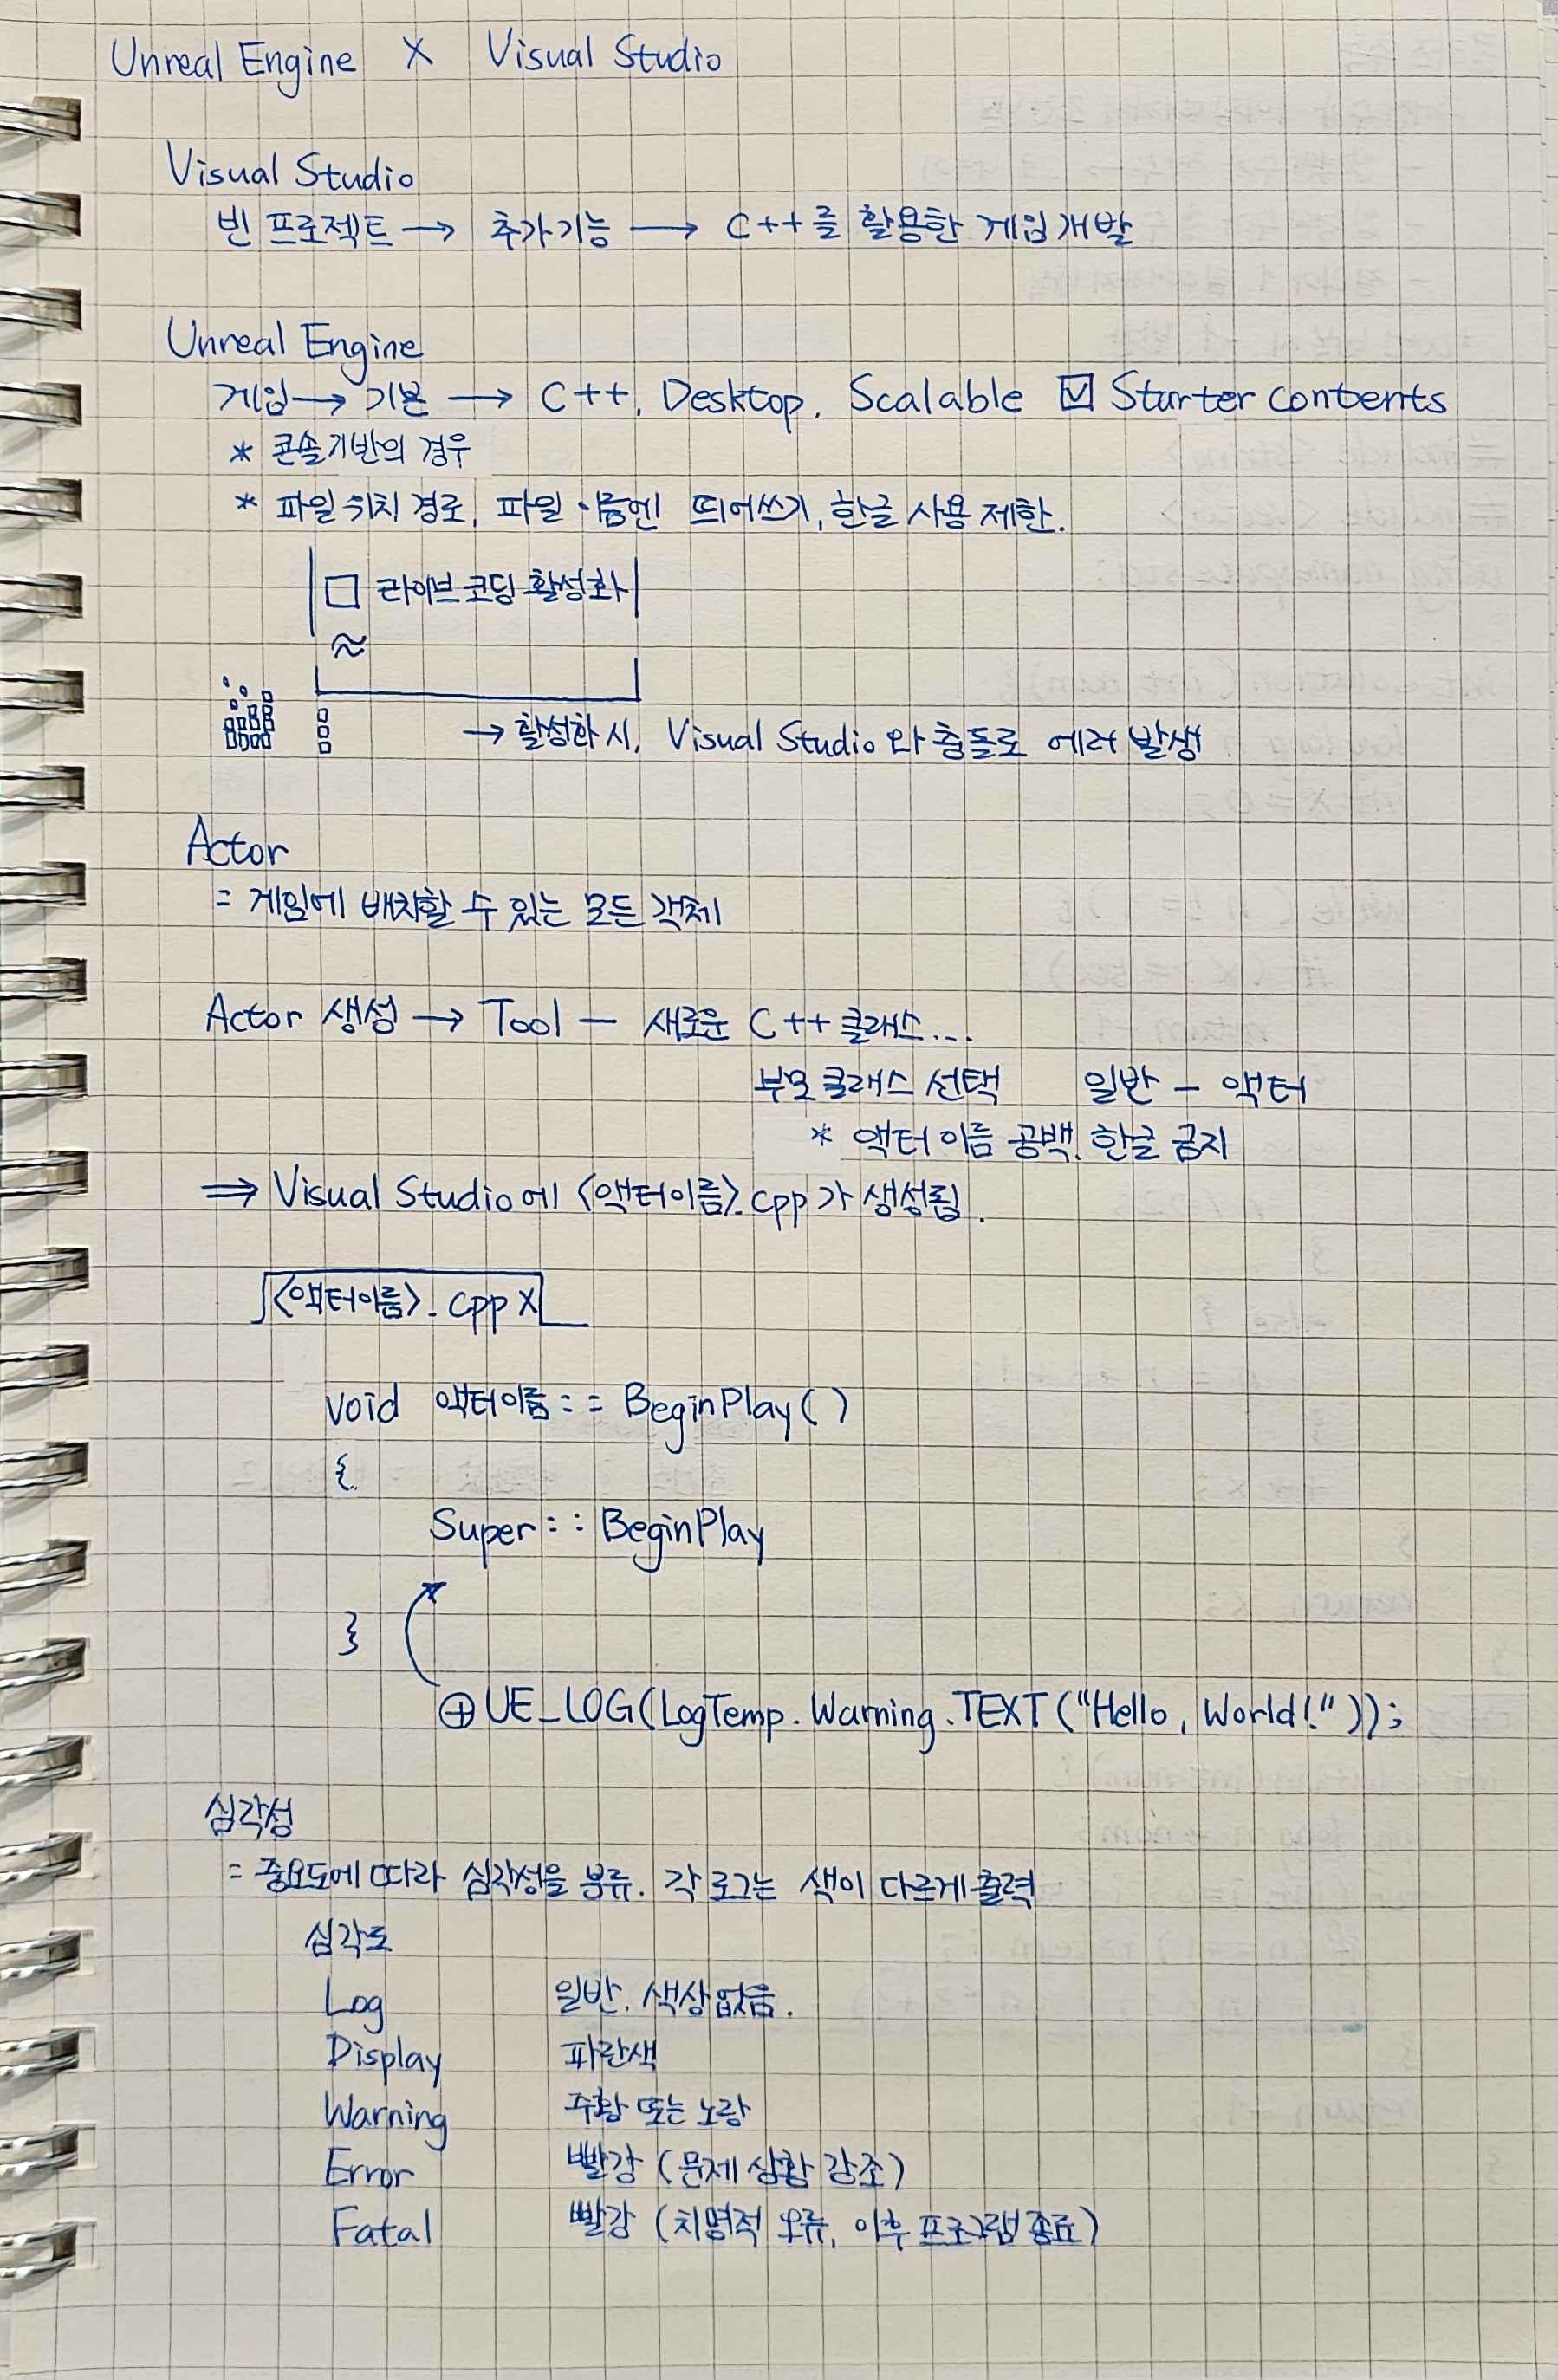 Unreal Engine X Visual Studio
Visual Studio
빈 프로젝트 → 추가기능 → C++를 활용한 게임개발
Unreal Engine
게임 → 기본 → C++, Desktop, Scalable ☑ Starter contents
* 콘솔기반의 경우
* 파일 위치 경로, 파일 이름엔 띄어쓰기, 한글 사용 제한.
□ 라이브 코딩 활성화
≈
→ 활성화 시, Visual Studio와 충돌로 에러 발생
Actor
= 게임에 배치할 수 있는 모든 객체
Actor 생성 → Tool - 새로운 C++ 클래스...
부모 클래스 선택 일반 - 액터
* 액터 이름 공백, 한글 금지
⇒ Visual Studio에 <액터이름>.cpp가 생성됨.
<액터이름>.cpp X
void 액터이름::BeginPlay()
{
Super::BeginPlay
}
⊕ UE_LOG(LogTemp.Warning.TEXT("Hello, World!"));
심각성
= 중요도에 따라 심각성을 분류. 각 로그는 색이 다르게 출력
심각도
Log 일반. 색상 없음.
Display 파란색
Warning 주황 또는 노랑
Error 빨강 (문제 상황 강조)
Fatal 빨강 (치명적 오류, 이후 프로그램 종료)